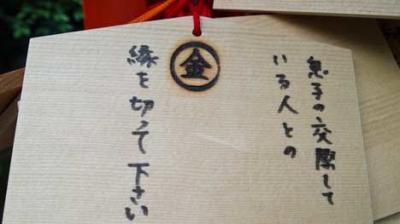 息子の交際して
いる人との
縁を切って下さい
金